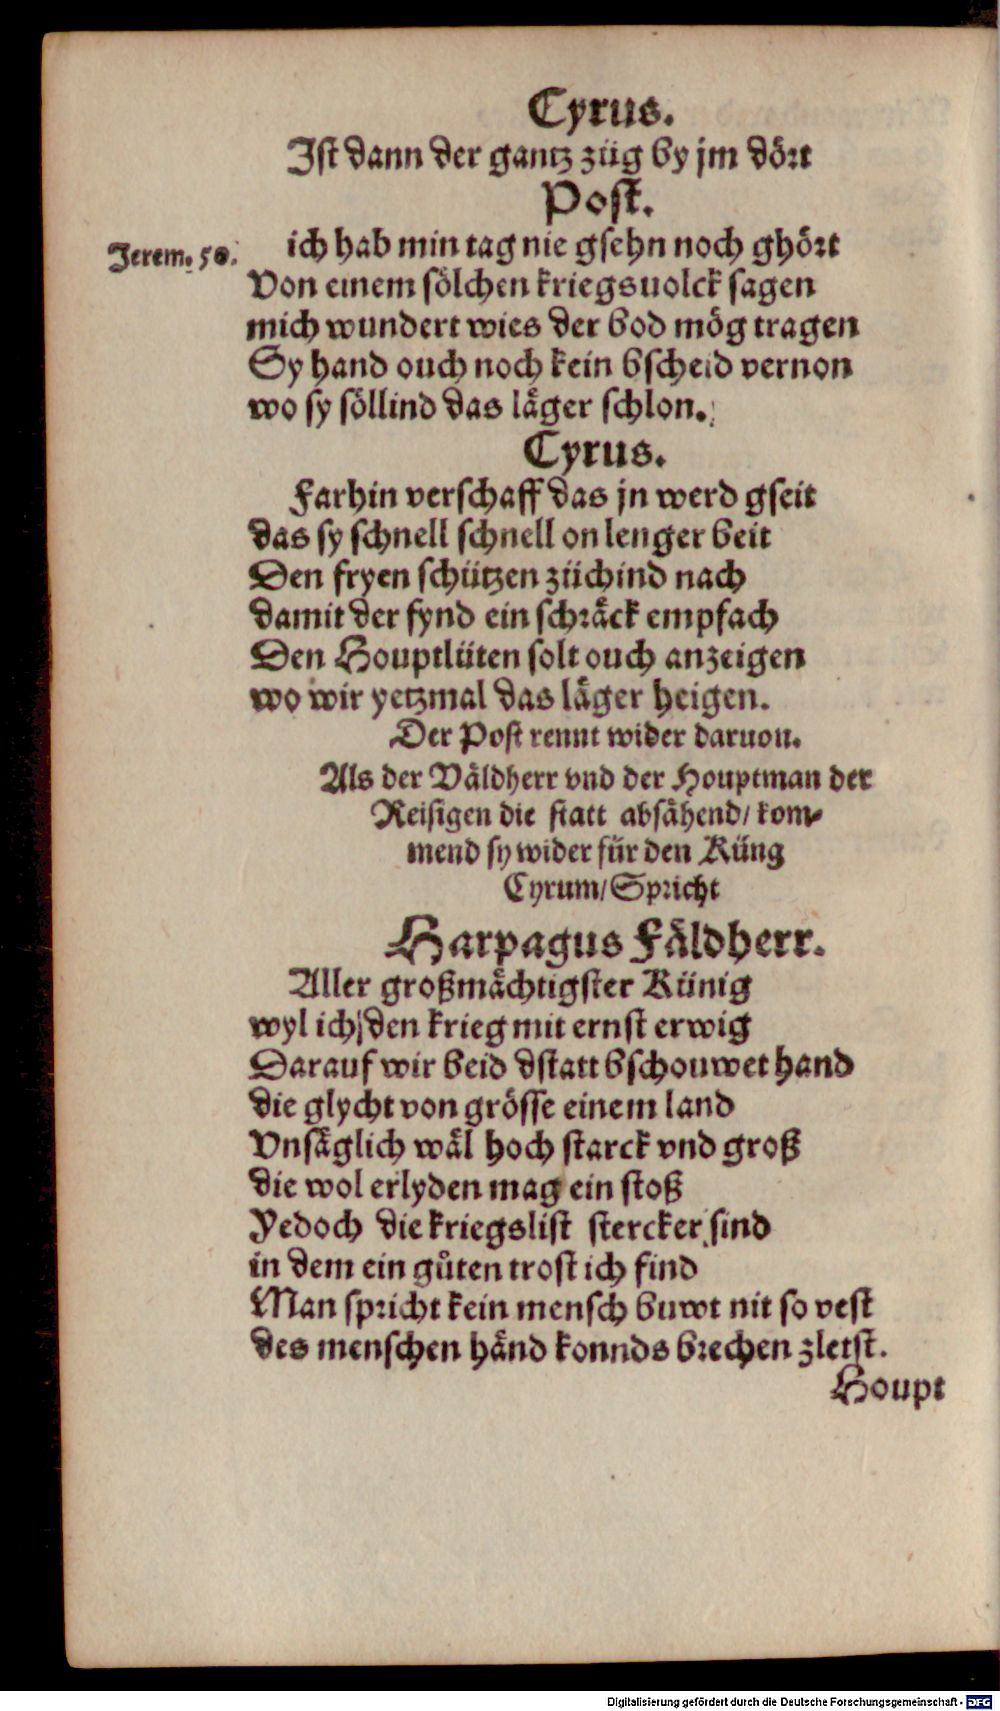 Cyrus.
Ist dann der gantz züg by jm dört
Post.
Jerem. 50.
ich hab min tag nie gsehn noch ghört
Von einem sölchen kriegsuolck sagen
mich wundert wies der bod mög tragen
Sy hand ouch noch kein bscheid vernon
wo sy söllind das läger schlon.
Cyrus.
Farhin verschaff das jn werd gseit
das sy schnell schnell on lenger beit
Den fryen schützen züchind nach
damit der fynd ein schräck empfach
Den Houptlüten solt ouch anzeigen
wo wir yetzmal das läger heigen.
Der Post rennt wider daruon.
Als der Väldherr vnd der Houptman der
Reisigen die statt absähend/ kom-
mend sy wider für den Küng
Cyrum/ Spricht
Harpagus Fäldherr.
Aller großmächtigster Künig
wyl ich den krieg mit ernst erwig
Darauf wir beid dstatt bschouwet hand
die glycht von grösse einem land
Vnsäglich wäl hoch starck vnd groß
die wol erlyden mag ein stoß
Yedoch die kriegslist stercker sind
in dem ein gůten trost ich find
Man spricht kein mensch buwt nit so vest
des menschen händ konnds brechen zletst.
Houpt
Digitalisierung gefördert durch die Deutsche Forschungsgemeinschaft - DFG